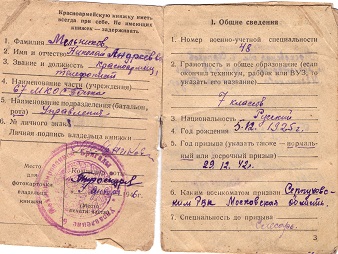 Красноармейскую книжку иметь
всегда при себе. Не имеющих
книжек — задерживать.
1. Фамилия Мельников
2. Имя и отчество Николай Андреевич
3. Звание и должность красноармеец
телефонист
4. Наименование части (учреждения)
67
5. Наименование подразделения (батальон,
рота) Управления
6. № личного знака
Личная подпись владельца книжки
Место
для
фотокарточки
владельца
книжки
Командир роты
бригады
Управление
I. Общие сведения
1. Номер военно-учетной специальности
48
2. Грамотность и общее образование (если
окончил техникум, рабфак или ВУЗ, то
указать его название)
7 классов
3. Национальность Русский
4. Год рождения 5.12.1925 г.
5. Год призыва (указать также — нормаль-
ный или досрочный призыв)
29.12.42 г.
6. Каким военкоматом призван Серпуховс-
ким РВК Московской области.
7. Специальность до призыва
слесарь
3